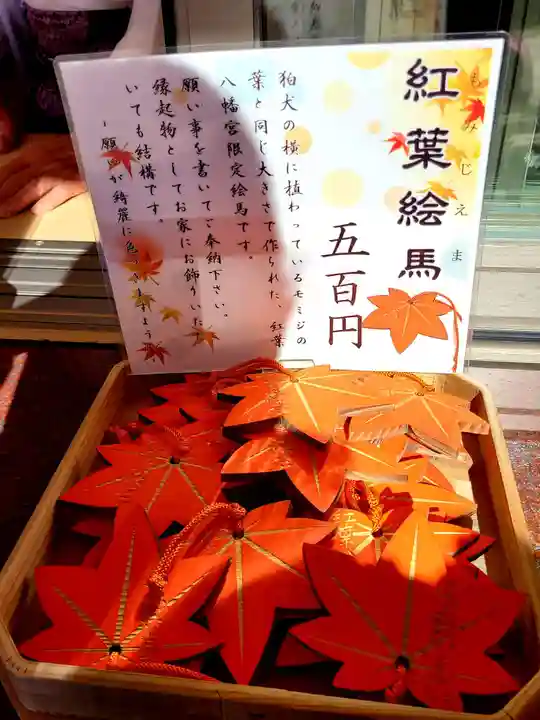 紅葉絵馬
もみじえま
五百円
狛犬の横に植わっているモミジの
葉と同じ大きさで作られた、紅葉
八幡宮限定絵馬です。
願い事を書いてご奉納下さい。
縁起物としてお家にお飾りいただ
いても結構です。
が綺麗に色
紅葉